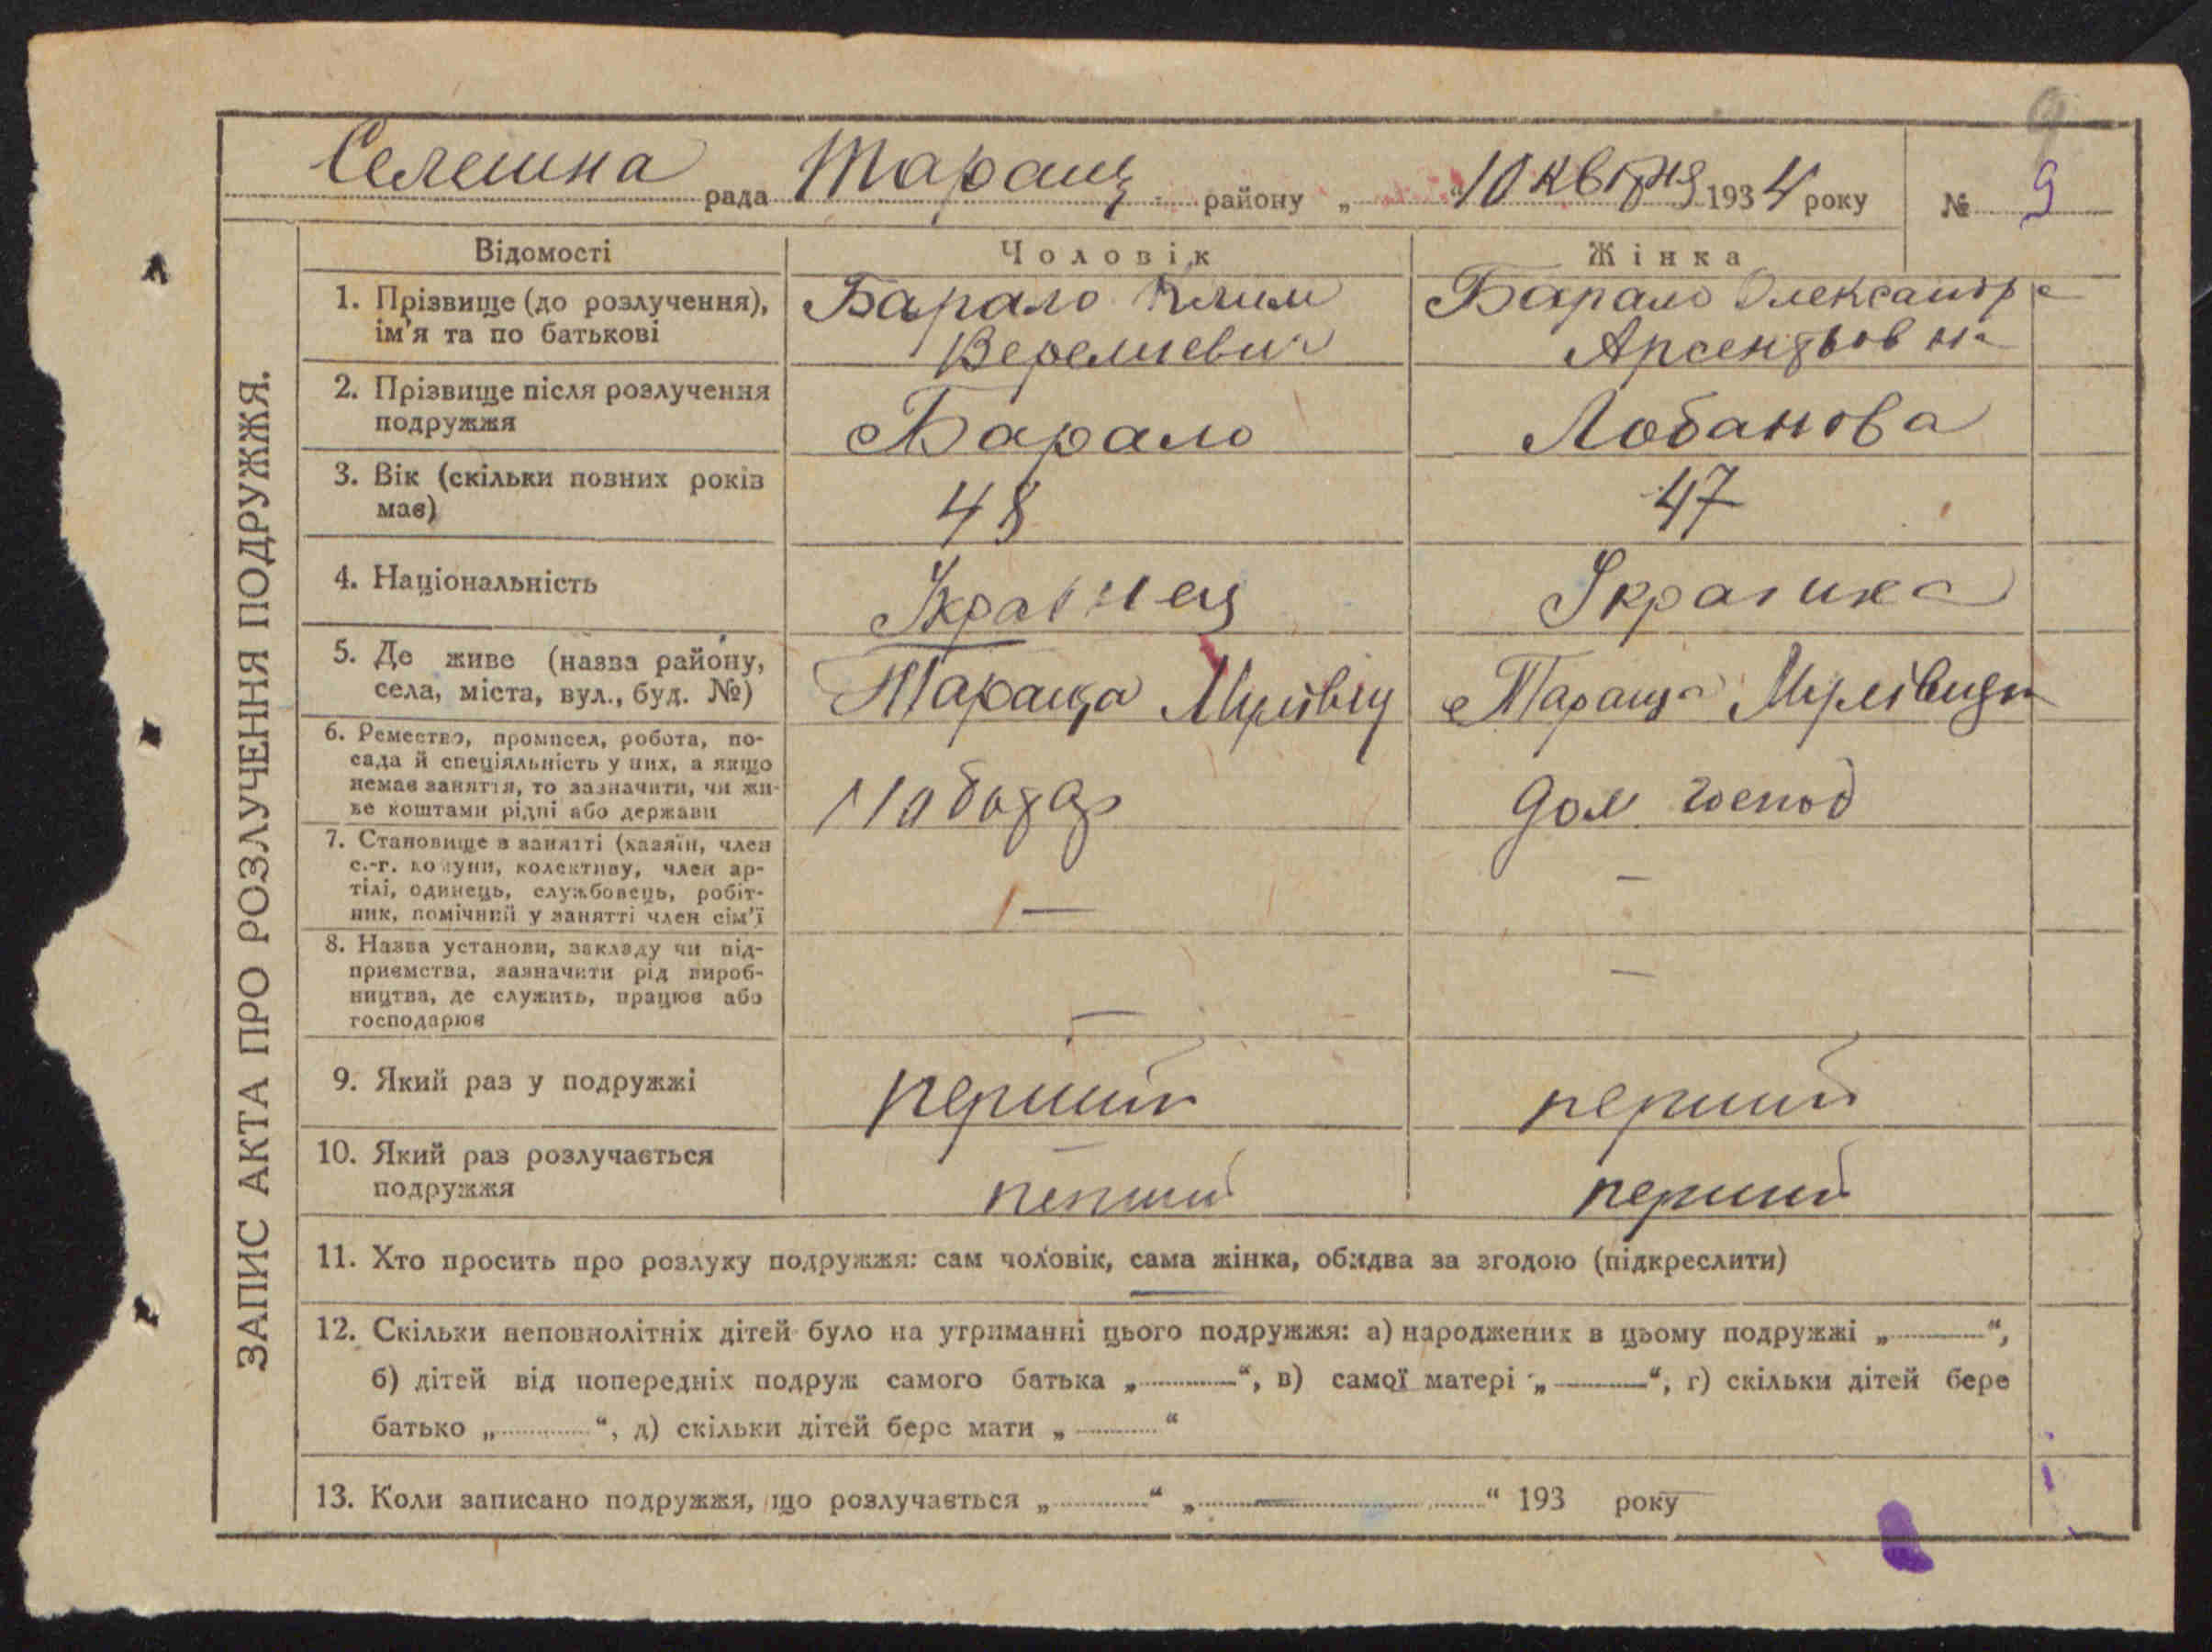 9
Селешна рада Таращ району „ “ 10 квітня 1934 року № 9
ЗАПИС АКТА ПРО РОЗЛУЧЕННЯ ПОДРУЖЖЯ.
Відомості Чоловік Жінка
1. Прізвище (до розлучення), ім'я та по батькові
Барало Клим
Веремиевич
Барало Олександра
Арсентьовна
2. Прізвище після розлучення подружжя
Барало
Лобанова
3. Вік (скільки повних років має)
48
47
4. Національність
Українец
Українка
5. Де живе (назва району, села, міста, вул., буд. №)
Тараща
Тараща
6. Ремество, промисел, робота, по-
сада й спеціяльність у них, а якщо
немає заняття, то зазначити, чи жи-
ве коштами рідні або держави
дом господ
7. Становище в занятті (хазяїн, член
с.-г. комуни, колективу, член ар-
тілі, одинець, службовець, робіт-
ник, помічний у занятті член сім'ї
—
—
8. Назва установи, закладу чи під-
приємства, зазначити рід вироб-
ництва, де служить, працює або
господарює
—
—
9. Який раз у подружжі
перший
перший
10. Який раз розлучається
подружжя
перший
перший
11. Хто просить про розлуку подружжя: сам чоловік, сама жінка, обидва за згодою (підкреслити)
12. Скільки неповнолітніх дітей було на утриманні цього подружжя: а) народжених в цьому подружжі „ — “,
б) дітей від попередніх подруж самого батька „ — “, в) самої матері „ — “, г) скільки дітей бере
батько „ “, д) скільки дітей бере мати „ — “
13. Коли записано подружжя, що розлучається „ “ „ — “ 193 року